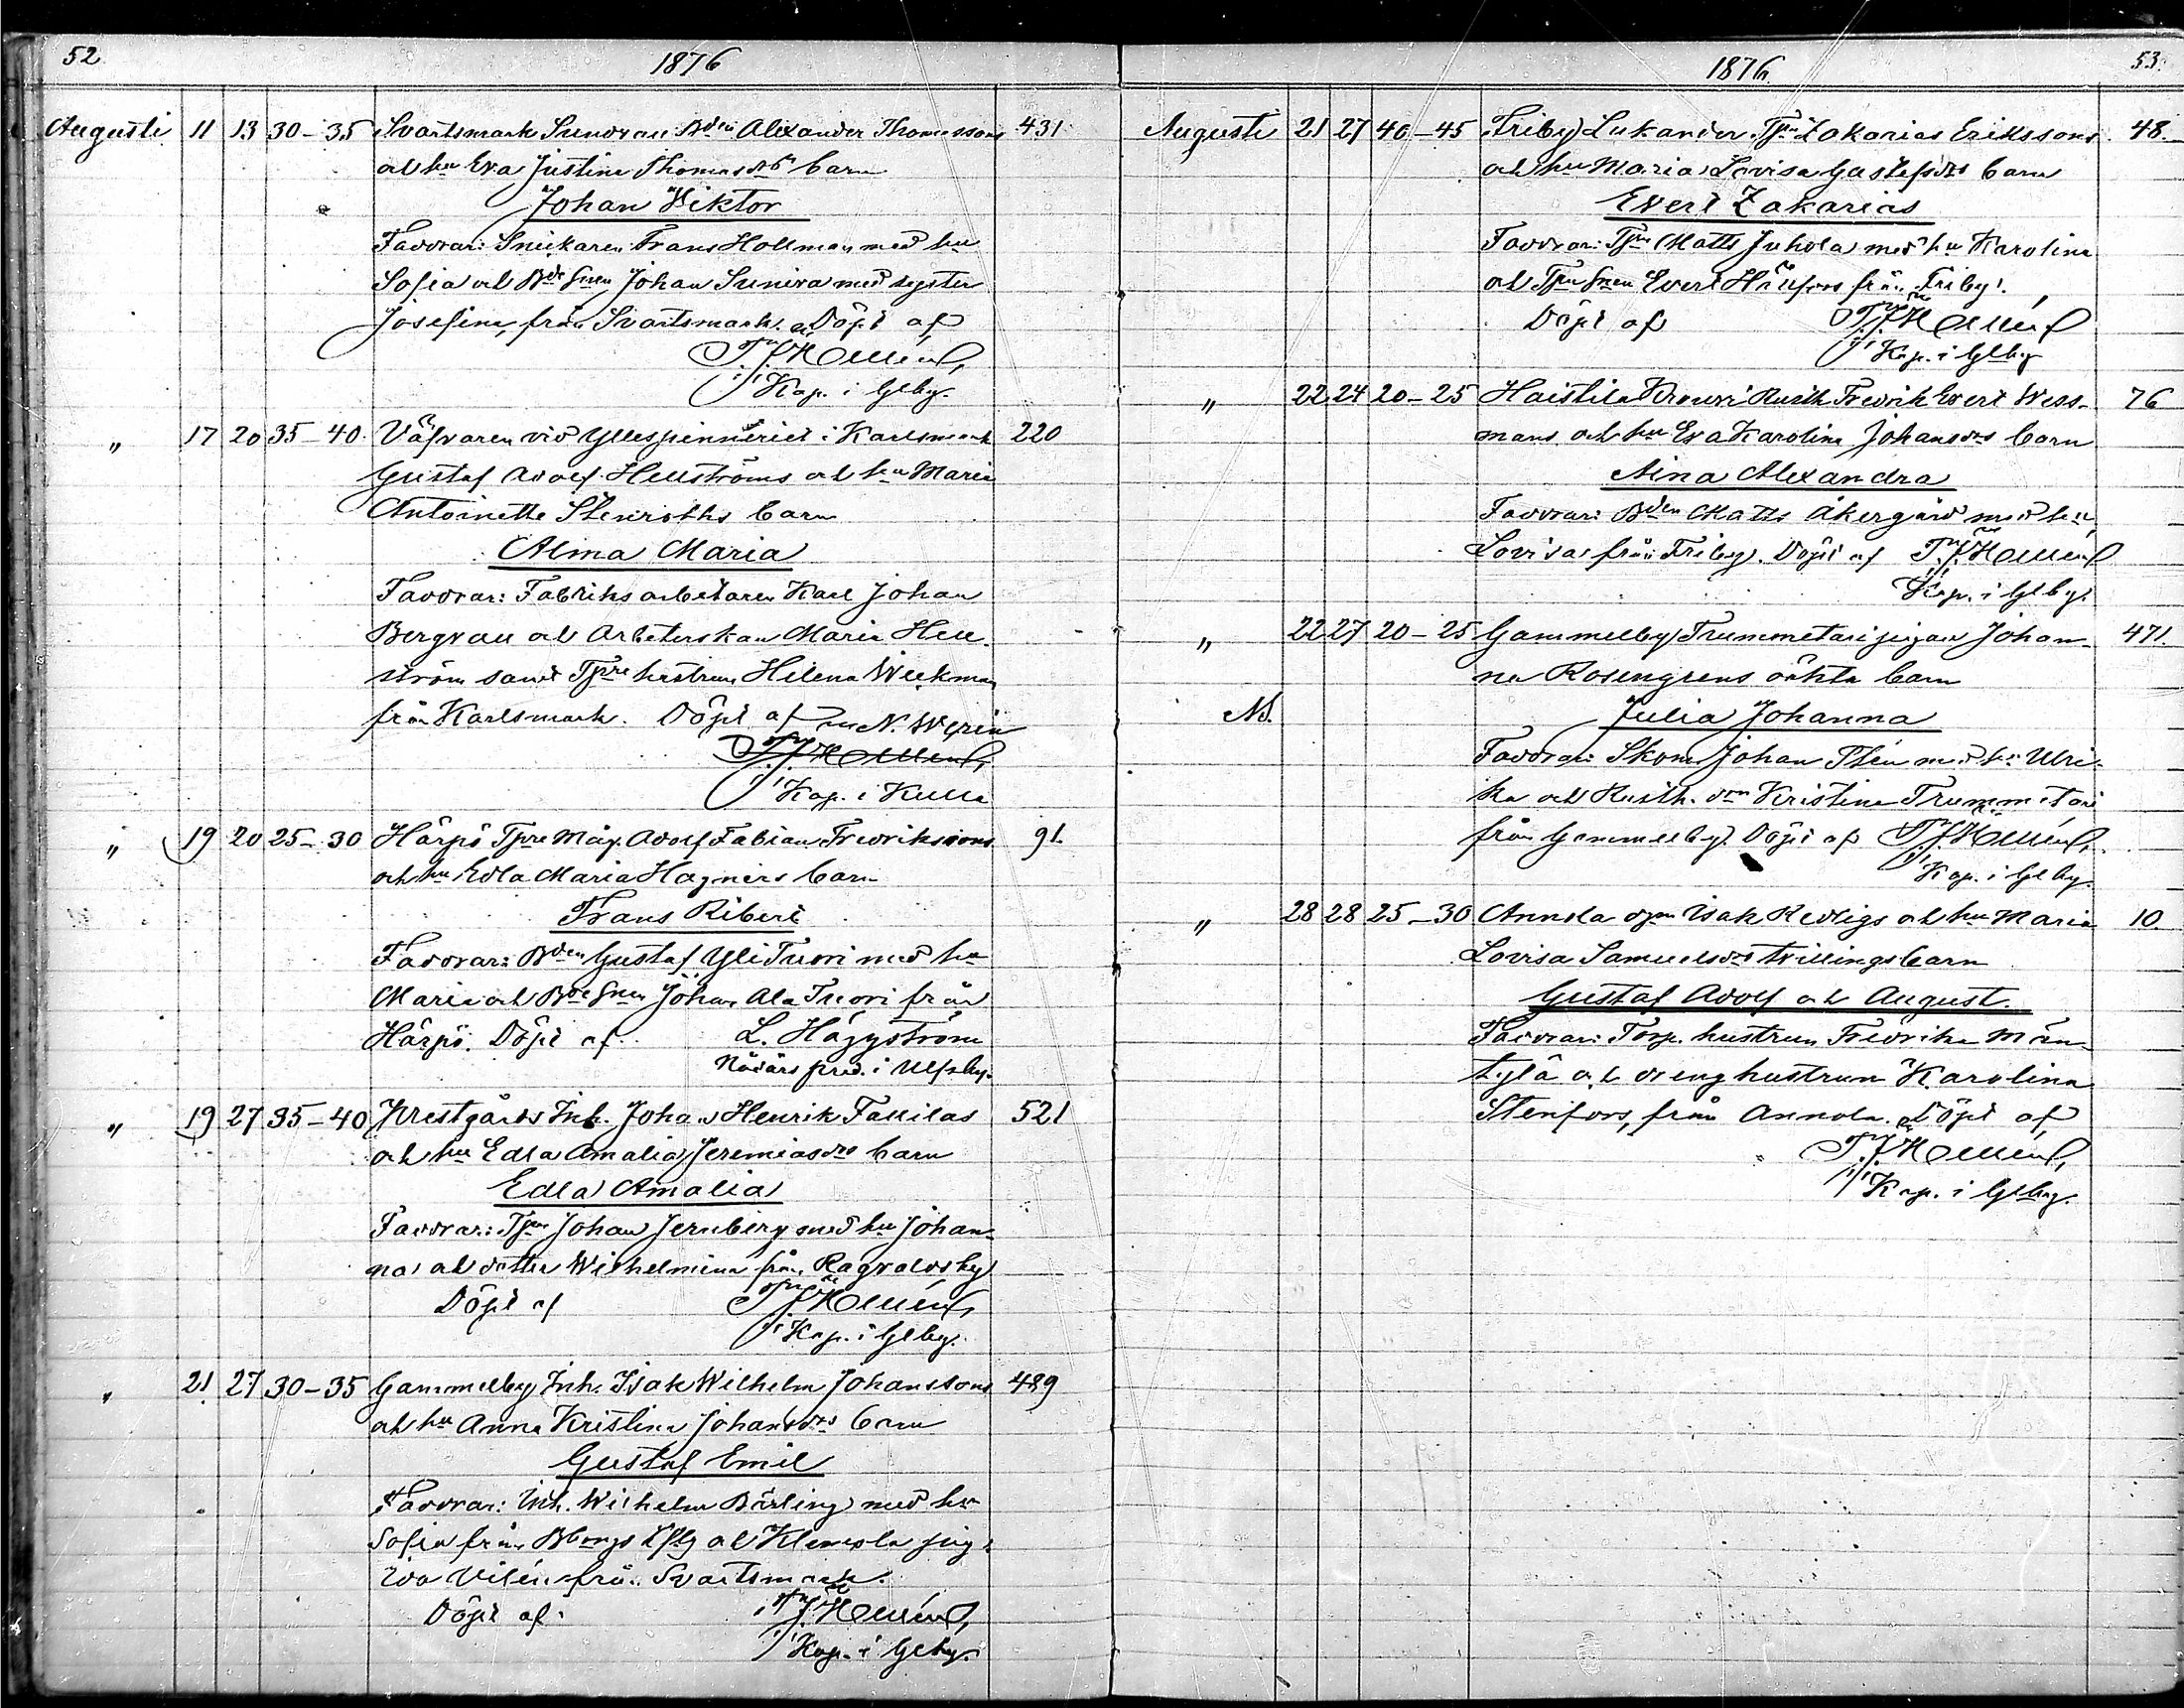 52
1876
Augusti 11 13 30-35 Svartsmark Sundvall Bden Alexander Thomassons 431
och hu Eva Justina Thomasdrs barn
Johan Wiktor
Faddrar: Snickaren Frans Hollman med hu
Sofia och Bde Snen Johan med syster
Josefina, från Svartsmark. Döpt af
Kap. i Glby.
" 17 20 35-40 Väfvaren vid Yllespinneriet i Karlsmark 220
Gustaf Adolf Hellströms och hu Maria
Antoinette Stenroths barn
Alma Maria
Faddrar: Fabriksarbetaren Karl Johan
Bergvall och Arbeterskan Maria Hell-
ström samt Tpre hustrun Helena Weckman
från Karlsmark. Döpt af N. Wegelin
Kap. i Kulla
" 19 20 25-30 Härpö Tpre Måg. Adolf Fabian Fredrikssons 91.
och hu Edla Maria Hagners barn
Frans Ribert
Faddrar: Bden Gustaf Yli Tuori med hu
Maria och Bde Snen Johan Ala Tuori från
Härpö. Döpt af L. Häggström
Nådårs pred. i Ulfsby.
" 19 27 35-40 Prestgårds Inh. Johan Henrik Fallilas 521
och hu Edla Amalia Jeremiasdrs barn
Edla Amalia
Faddrar: Tpn Johan Jernberg med hu Johan-
na och dotter Wilhelmina från Ragvaldsby
Döpt af
Kap. i Glby.
" 21 27 30-35 Gammelby Inh. Isak Wilhelm Johanssons 489
och hu Anna Kristina Johansdrs barn
Gustaf Emil
Faddrar: Inh. Wilhelm Bärling med hu
Sofia från och Klemola pig.
Ida Vilén från Svartsmark.
Döpt af
Kap. i Glby.
1876.
53.
Augusti 21 27 40-45 Friby Lukander Tpn Zakarias Erikssons 48.
och hu Maria Lovisa Gustafsdrs barn
Evert Zakarias
Faddrar: Tpn Matts Juhola med hu Karolina
och Tpn Snen Evert Hällfors från Friby.
Döpt af
Kap. i Glby
" 22 24 20-25 Haistila Krouvi Rusth Fredrik Evert Wess- 76
mans och hu Eva Karolina Johansdrs barn
Aina Alexandra
Faddrar: Bden Matts Åkergård med hu
Lovisa från Friby. Döpt af
Kap. i Glby.
" 22 27 20-25 Gammelby Trummetari pigan Johan- 471.
na Rosengrens oäkta barn
Julia Johanna
Faddrar: Skom. Johan Stén med hu Ulri-
ka och Rusth. drn Kristina Trummetari
från Gammelby. Döpt af
Kap. i Glby.
" 28 28 25-30 Annola Isak Redligs och hu Maria 10.
Lovisa Samuelsdrs tvillingsbarn
Gustaf Adolf och August.
Faddrar: Torp. hustrun Fredrika Män-
tylä och drenghustrun Karolina
Stenfors, från Annola. Döpt af
Kap. i Glby.